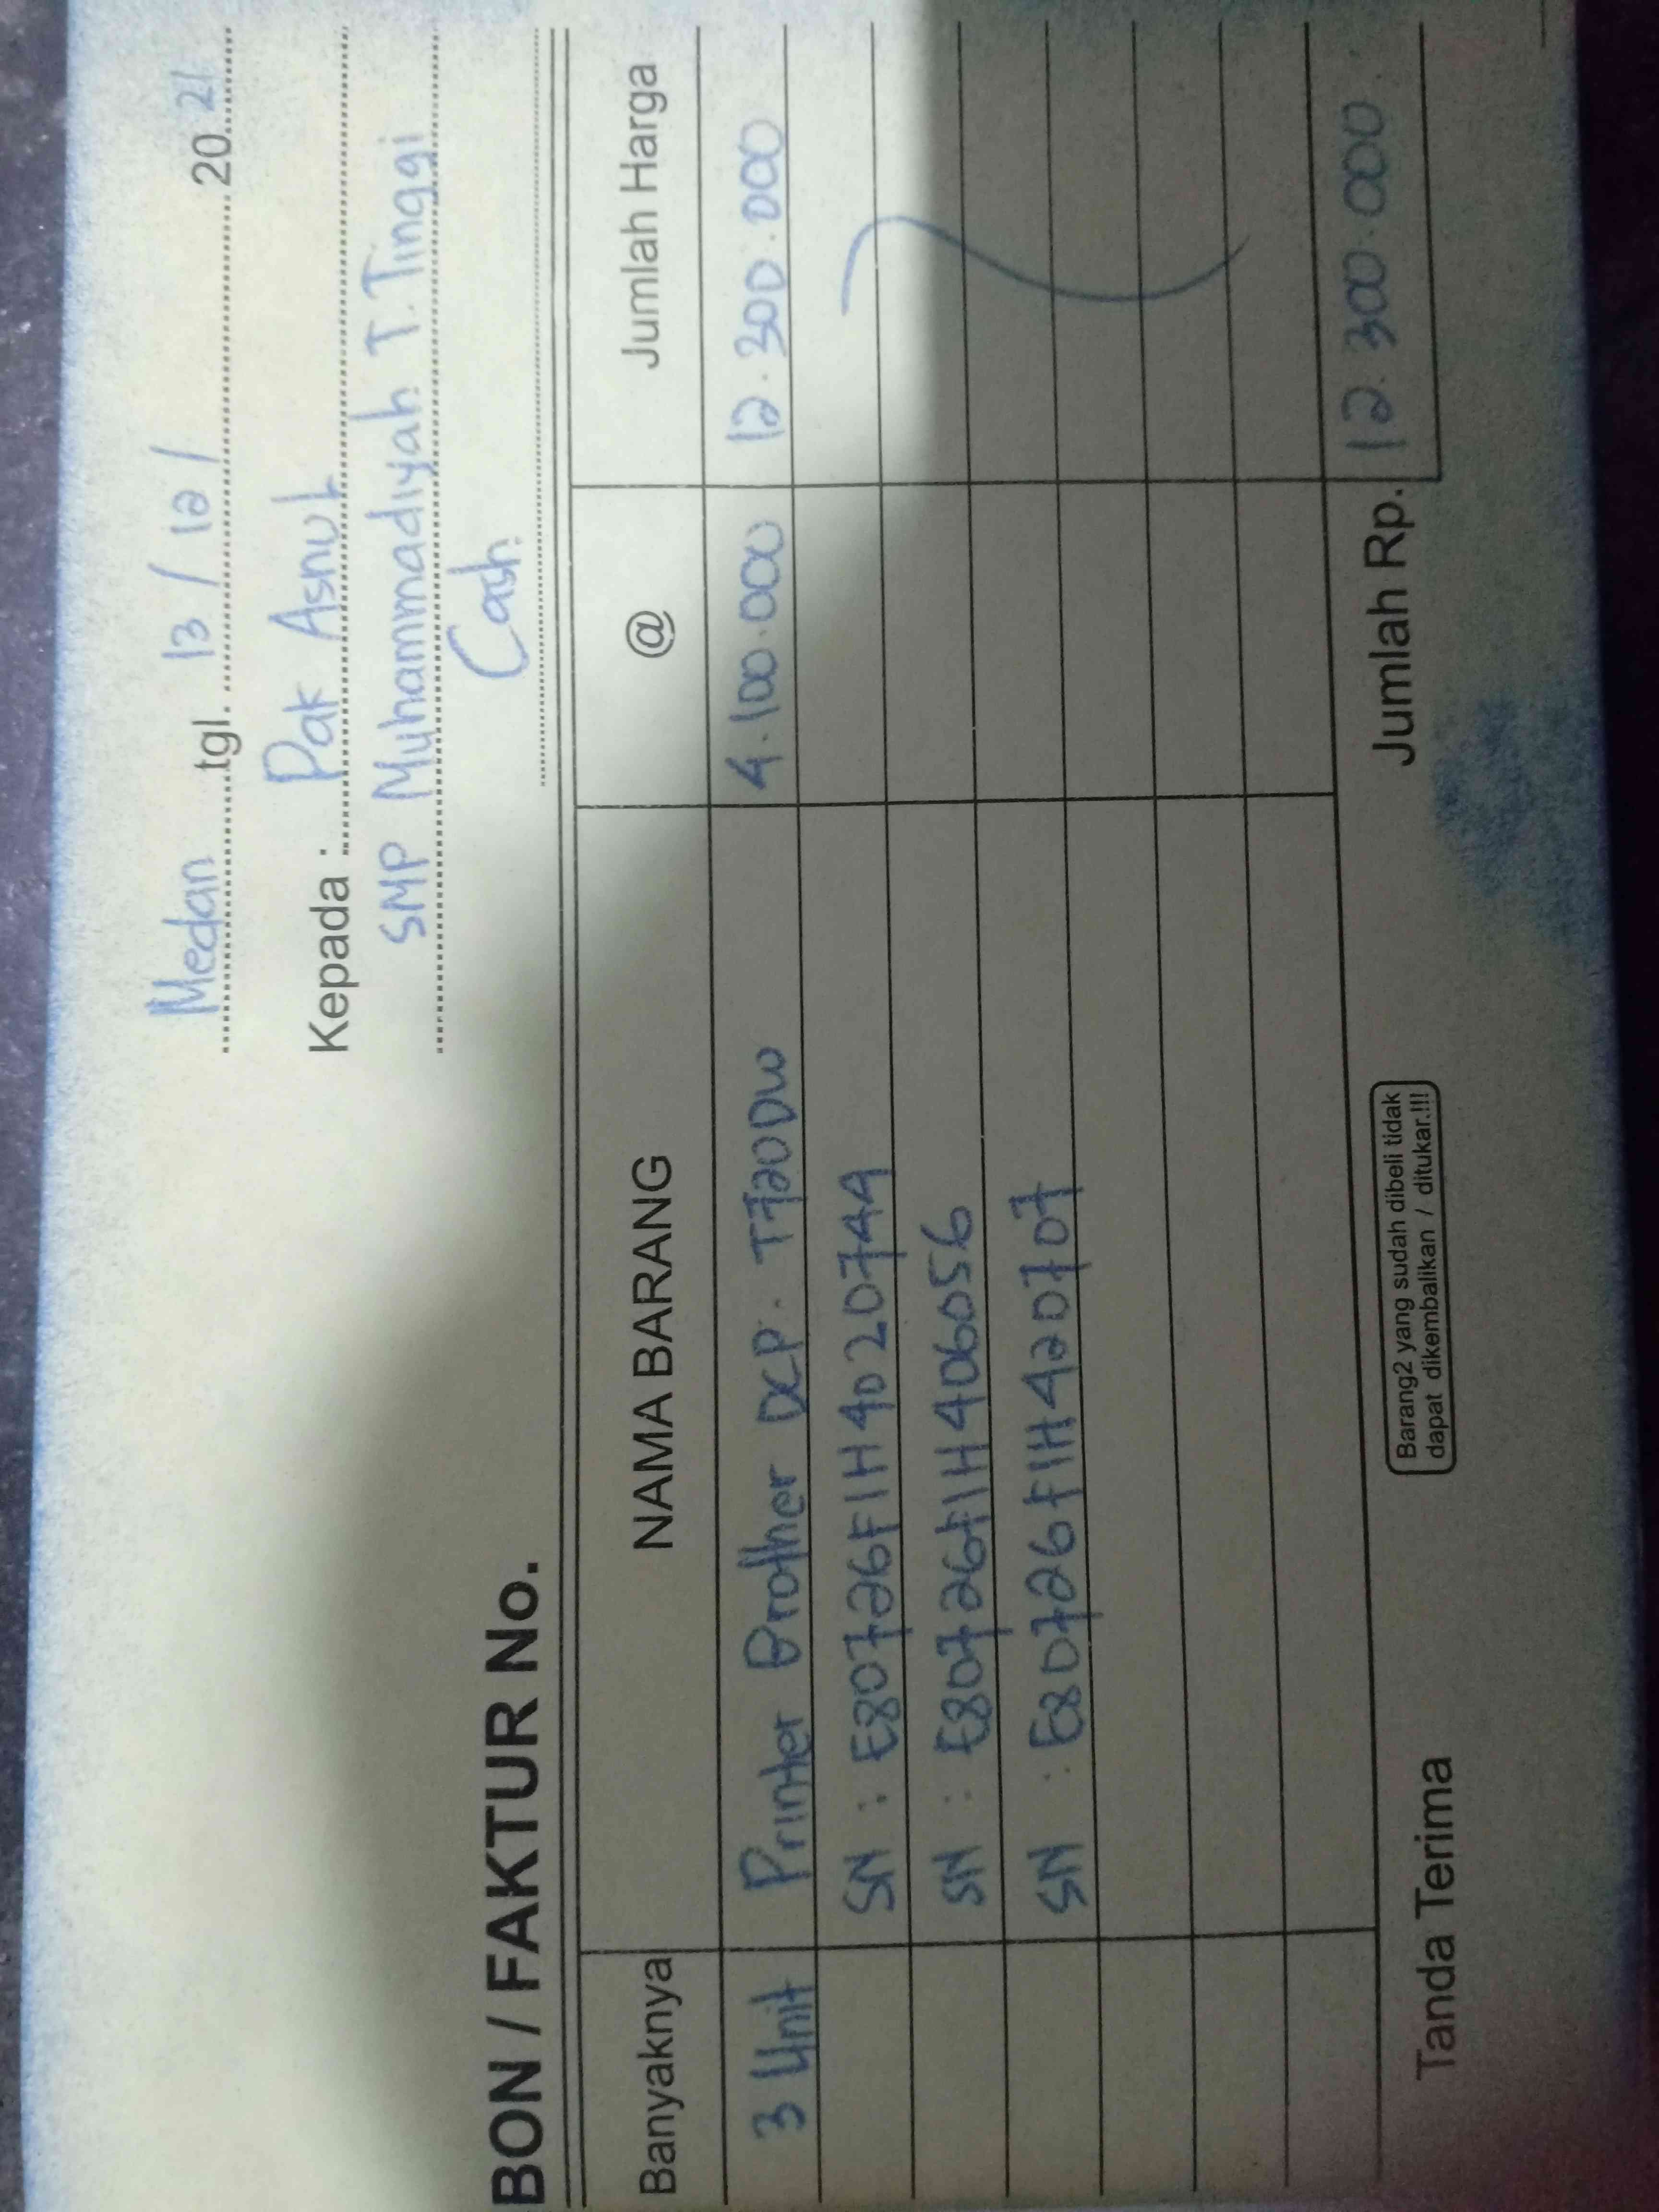 Medan tgl. 13 / 12 / 2021
Kepada : Pak Asnul
SMP Muhammadiyah T. Tinggi
Cash
BON / FAKTUR No.
Banyaknya NAMA BARANG @ Jumlah Harga
3 Unit Printer Brother DCP. T720DW 4.100.000 12.300.000
SN : E80726F1H4020744
SN : E80726F1H406056
SN : E80726F1H420707
Jumlah Rp. 12.300.000
Tanda Terima
Barang2 yang sudah dibeli tidak
dapat dikembalikan / ditukar.!!!